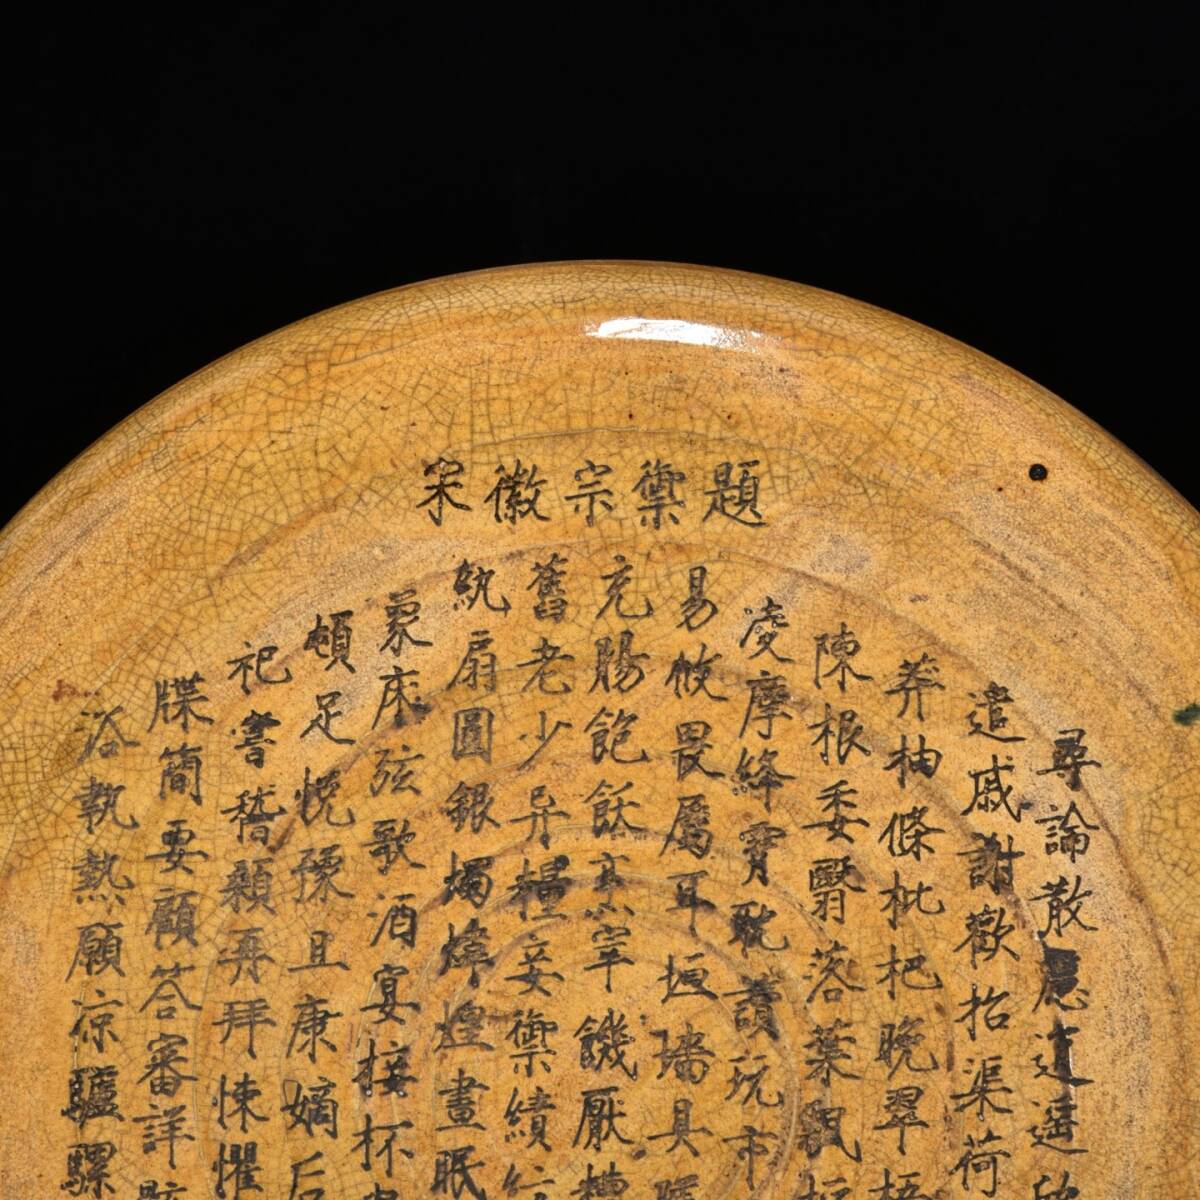 宋徽宗禦題
尋論散慮逍遙
遣戚謝歡招渠荷
莽抽條枇杷晚翠梧
陳根委翳落葉飄
凌摩絳霄耽讀玩市
易攸畏屬耳垣墻具
充腸飽飫烹宰饑厭糟
舊老少异糧妾禦績
紈扇圓銀燭煒煌晝眠
象床弦歌酒宴接杯
頓足悅豫且康嫡后
祀嘗稽顙再拜悚懼
牒簡要顧答審詳
浴執熱願涼驢騾